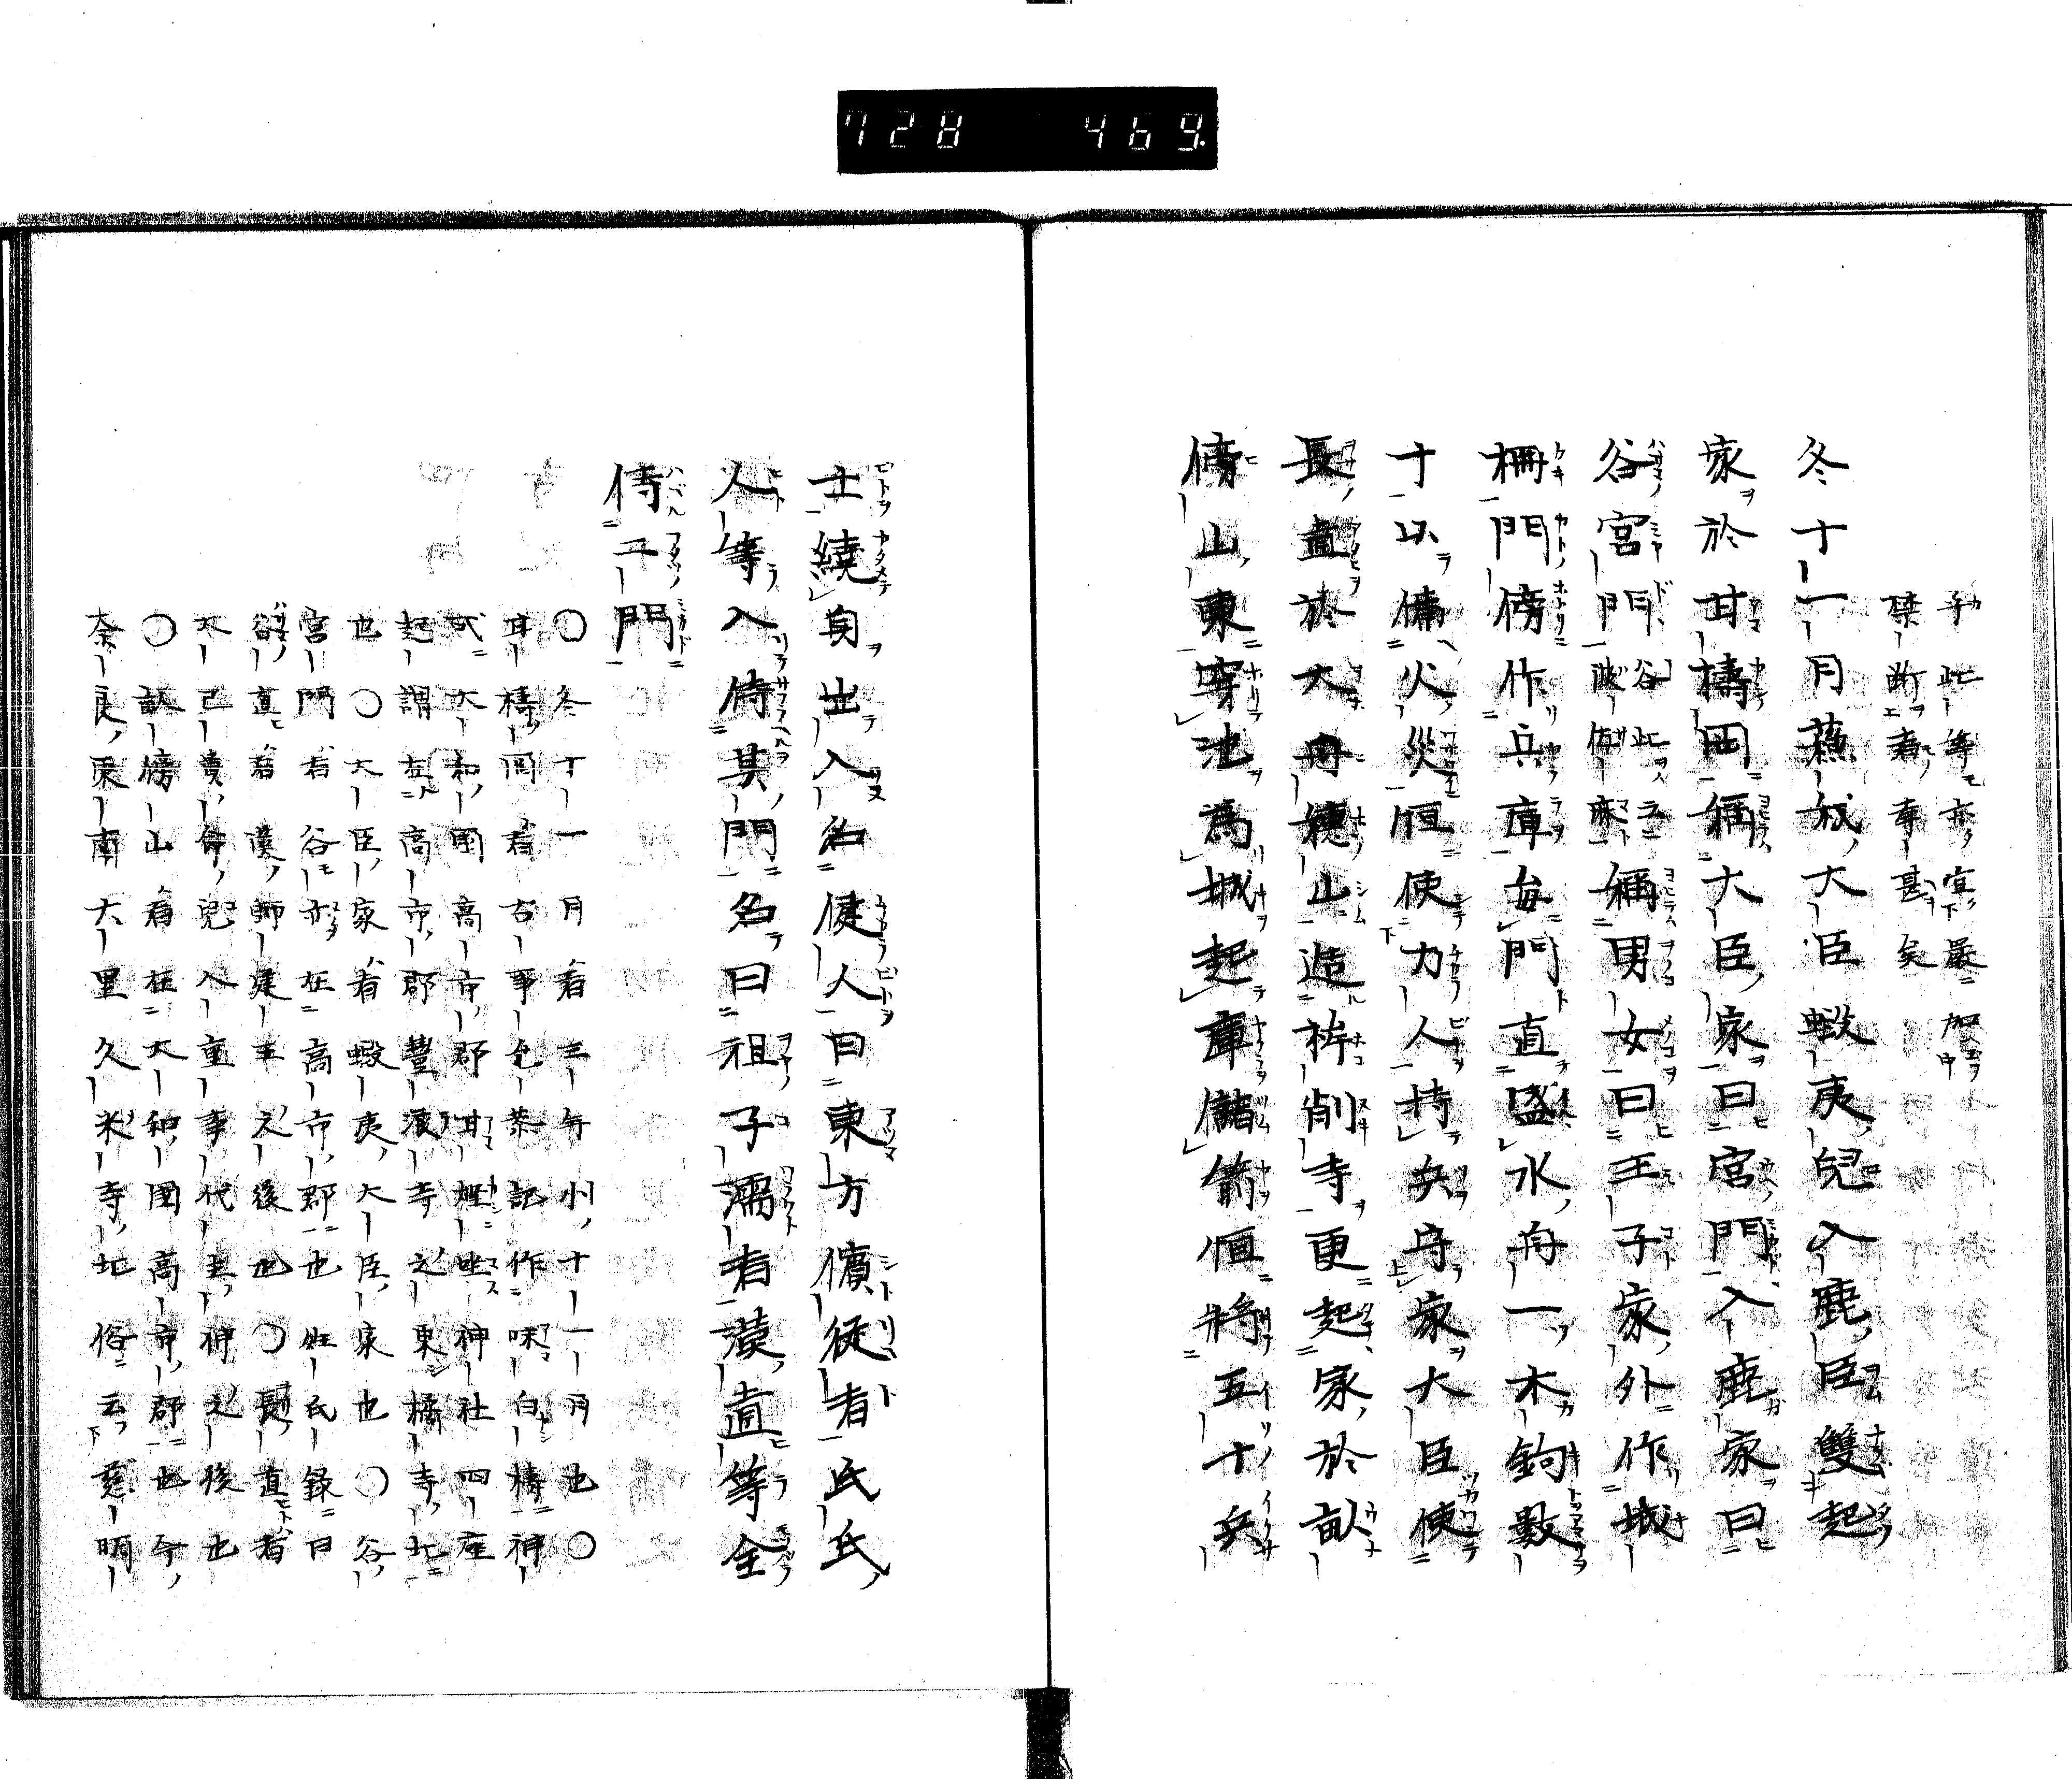 728 469.
乎此等亦宜嚴加
禁断者幸甚矣
冬十一月蘇我大臣蝦夷兒入鹿臣雙起
家於甘檮岡稱大臣家曰宮門入鹿家曰
谷宮門谷此云波佐麻稱男女曰王子家外作城
柵門傍作兵庫毎門置盛水舟一木鉤數
十以備火災恒使力人持兵守家大臣使
長直於大丹穂山造桙削寺更起家於畝
傍山東穿池爲城起庫儲箭恒將五十兵
士繞身出入名健人曰東方儐從者氏氏
人等入侍其門名曰祖子孺者漢直等全
侍二門
○冬十一月者三年州十一月也○
甘檮岡者古事允恭記作味白檮神
式大和國高市郡甘樫坐神社四座
起謂在高市郡豐浦寺之東橘寺北
也○大臣家者蝦夷大臣家也○谷
宮門者谷亦在高市郡也姓氏録曰
谷直者漢師建王之後也○長直者
大己貴命兒八重事代主神之後也
○畝傍山者在大和國高市郡也今
奈良栗南大里久米寺北俗云慈明